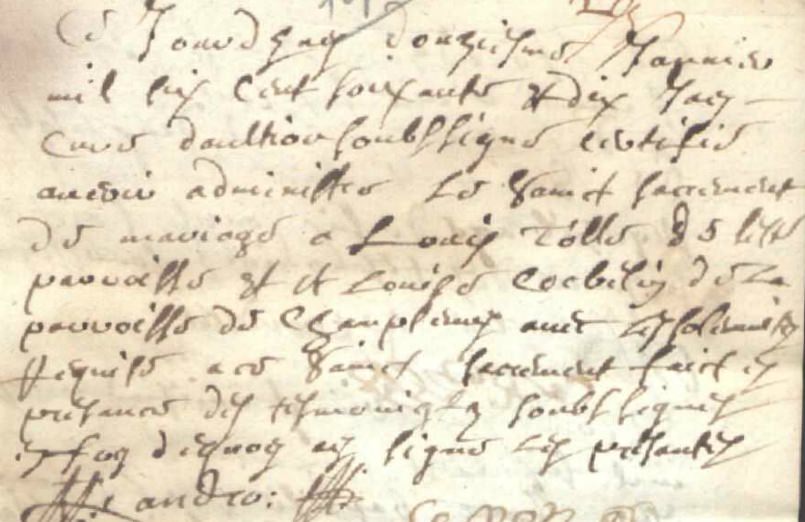 Ce Jourdhuy douziesme Janvier
mil six cent soixante & dix Je
Curé daultiou soubssigné certifie
avoir administré Le Sainct sacrement
de mariage a Louis Tolle de
parroisse & Louise Corbelin de La
parroisse de Champlemy avec Les solemnitez
Requise a ce Sainct sacrement faict en
presance des tesmoningtz soubssignes
en foy dequoy ay signé Les presantes
andro: